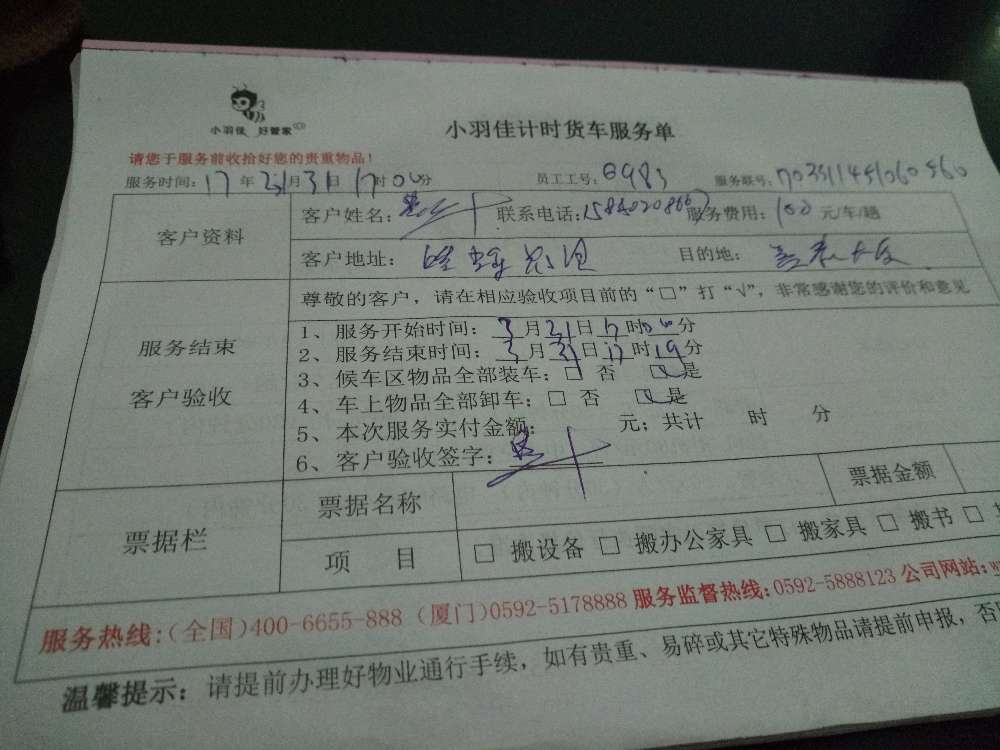 小羽佳 好管家
小羽佳计时货车服务单
请您于服务前收拾好您的贵重物品！
服务时间：17年 月31日17时00分 员工工号：0983 服务联号：
客户资料
客户姓名： 联系电话： 服务费用：100元/车/趟
客户地址： 目的地：
服务结束
客户验收
尊敬的客户，请在相应验收项目前的“□”打“√”，非常感谢您的评价和意见
1、服务开始时间：3月31日17时00分
2、服务结束时间：3月31日17时19分
3、候车区物品全部装车：□ 否 □是
4、车上物品全部卸车：□ 否 □是
5、本次服务实付金额： 元；共计 时 分
6、客户验收签字：
票据栏
票据名称 票据金额
项 目 □ 搬设备 □ 搬办公家具 □ 搬家具 □ 搬书 □
服务热线：（全国）400-6655-888（厦门）0592-5178888 服务监督热线：0592-5888123 公司网站：w
温馨提示：请提前办理好物业通行手续，如有贵重、易碎或其它特殊物品请提前申报，否